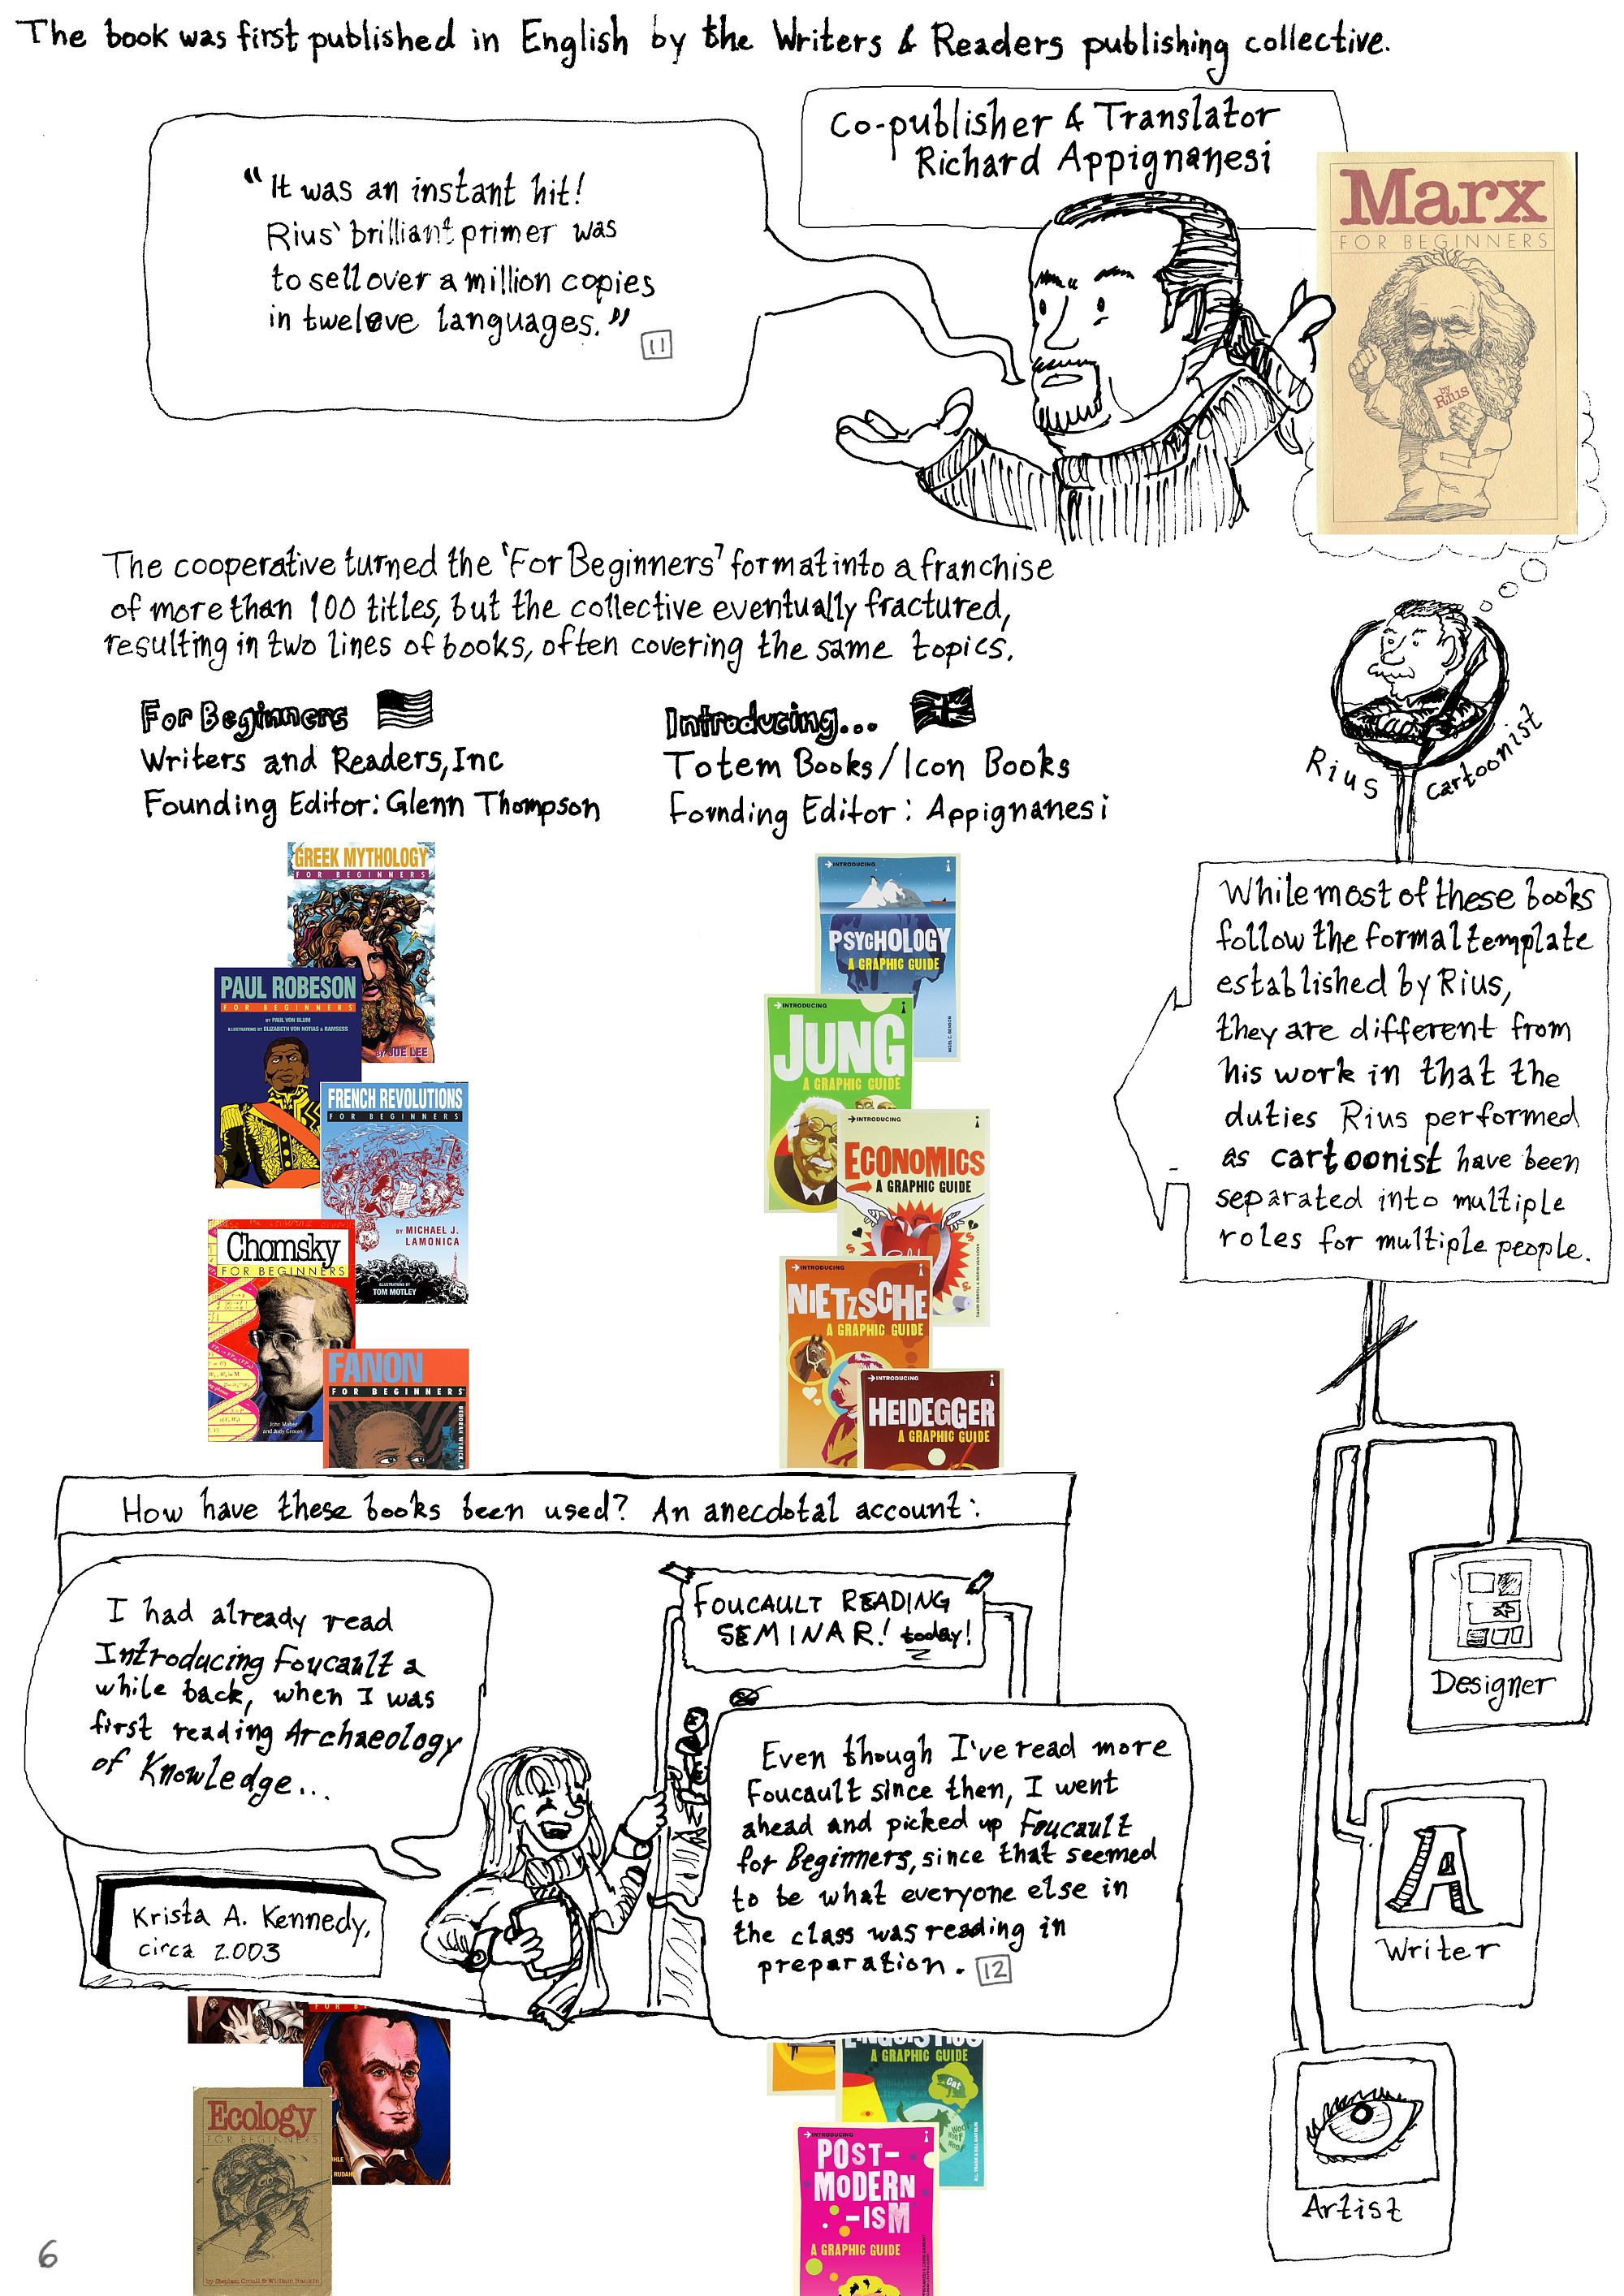 The book was first published in English by the Writers & Readers publishing collective.
Co-publisher & Translator
Richard Appignanesi
"It was an instant hit!
Rius' brilliant primer was
to sell over a million copies
in tweleve languages."
11
Marx
FOR BEGINNERS
by
Rius
The cooperative turned the 'For Beginners' format into a franchise
of more than 100 titles, but the collective eventually fractured,
resulting in two lines of books, often covering the same topics.
For Beginners
Writers and Readers, Inc
Founding Editor: Glenn Thompson
Introducing...
Totem Books/Icon Books
Founding Editor: Appignanesi
Rius cartoonist
GREEK MYTHOLOGY
FOR BEGINNERS
BY JOE LEE
PAUL ROBESON
FOR BEGINNERS
BY PAUL VON BLUM
ILLUSTRATIONS BY ELIZABETH VON NOTIAS & RAMSESS
FRENCH REVOLUTIONS
FOR BEGINNERS
BY MICHAEL J.
LAMONICA
ILLUSTRATIONS BY
TOM MOTLEY
Chomsky
FOR BEGINNERS
John Maher
and Judy Groves
FANON
FOR BEGINNERS
DEBORAH WYRICK, P
INTRODUCING
PSYCHOLOGY
A GRAPHIC GUIDE
NIGEL C. BENSON
INTRODUCING
JUNG
A GRAPHIC GUIDE
INTRODUCING
ECONOMICS
A GRAPHIC GUIDE
INTRODUCING
NIETZSCHE
A GRAPHIC GUIDE
INTRODUCING
HEIDEGGER
A GRAPHIC GUIDE
While most of these books
follow the formal template
established by Rius,
they are different from
his work in that the
duties Rius performed
as cartoonist have been
separated into multiple
roles for multiple people.
Designer
A
Writer
Artist
How have these books been used? An anecdotal account:
I had already read
Introducing Foucault a
while back, when I was
first reading Archaeology
of Knowledge...
FOUCAULT READING
SEMINAR! today!
Even though I've read more
Foucault since then, I went
ahead and picked up Foucault
for Beginners, since that seemed
to be what everyone else in
the class was reading in
preparation. 12
Krista A. Kennedy,
circa 2003
Ecology
FOR BEGINNERS
by Stephen Croall & William Rankin
A GRAPHIC GUIDE
Cat
WOOF
WOOF
WOOF
INTRODUCING
POST-
MODERN
-ISM
A GRAPHIC GUIDE
6